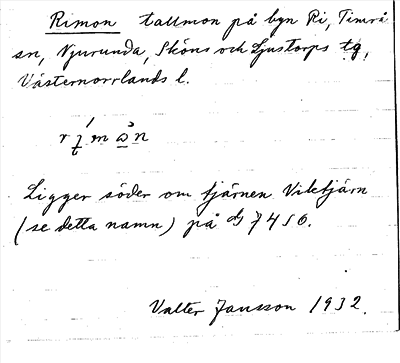 Rimon tallmon på byn Ri, Timrå
sn, Njurunda, Sköns och Ljustorps tg,
Västernorrlands l.
Ligger söder om tjärnen Viktjärn
(se detta namn) på 7456.
Valter Jansson 1932.